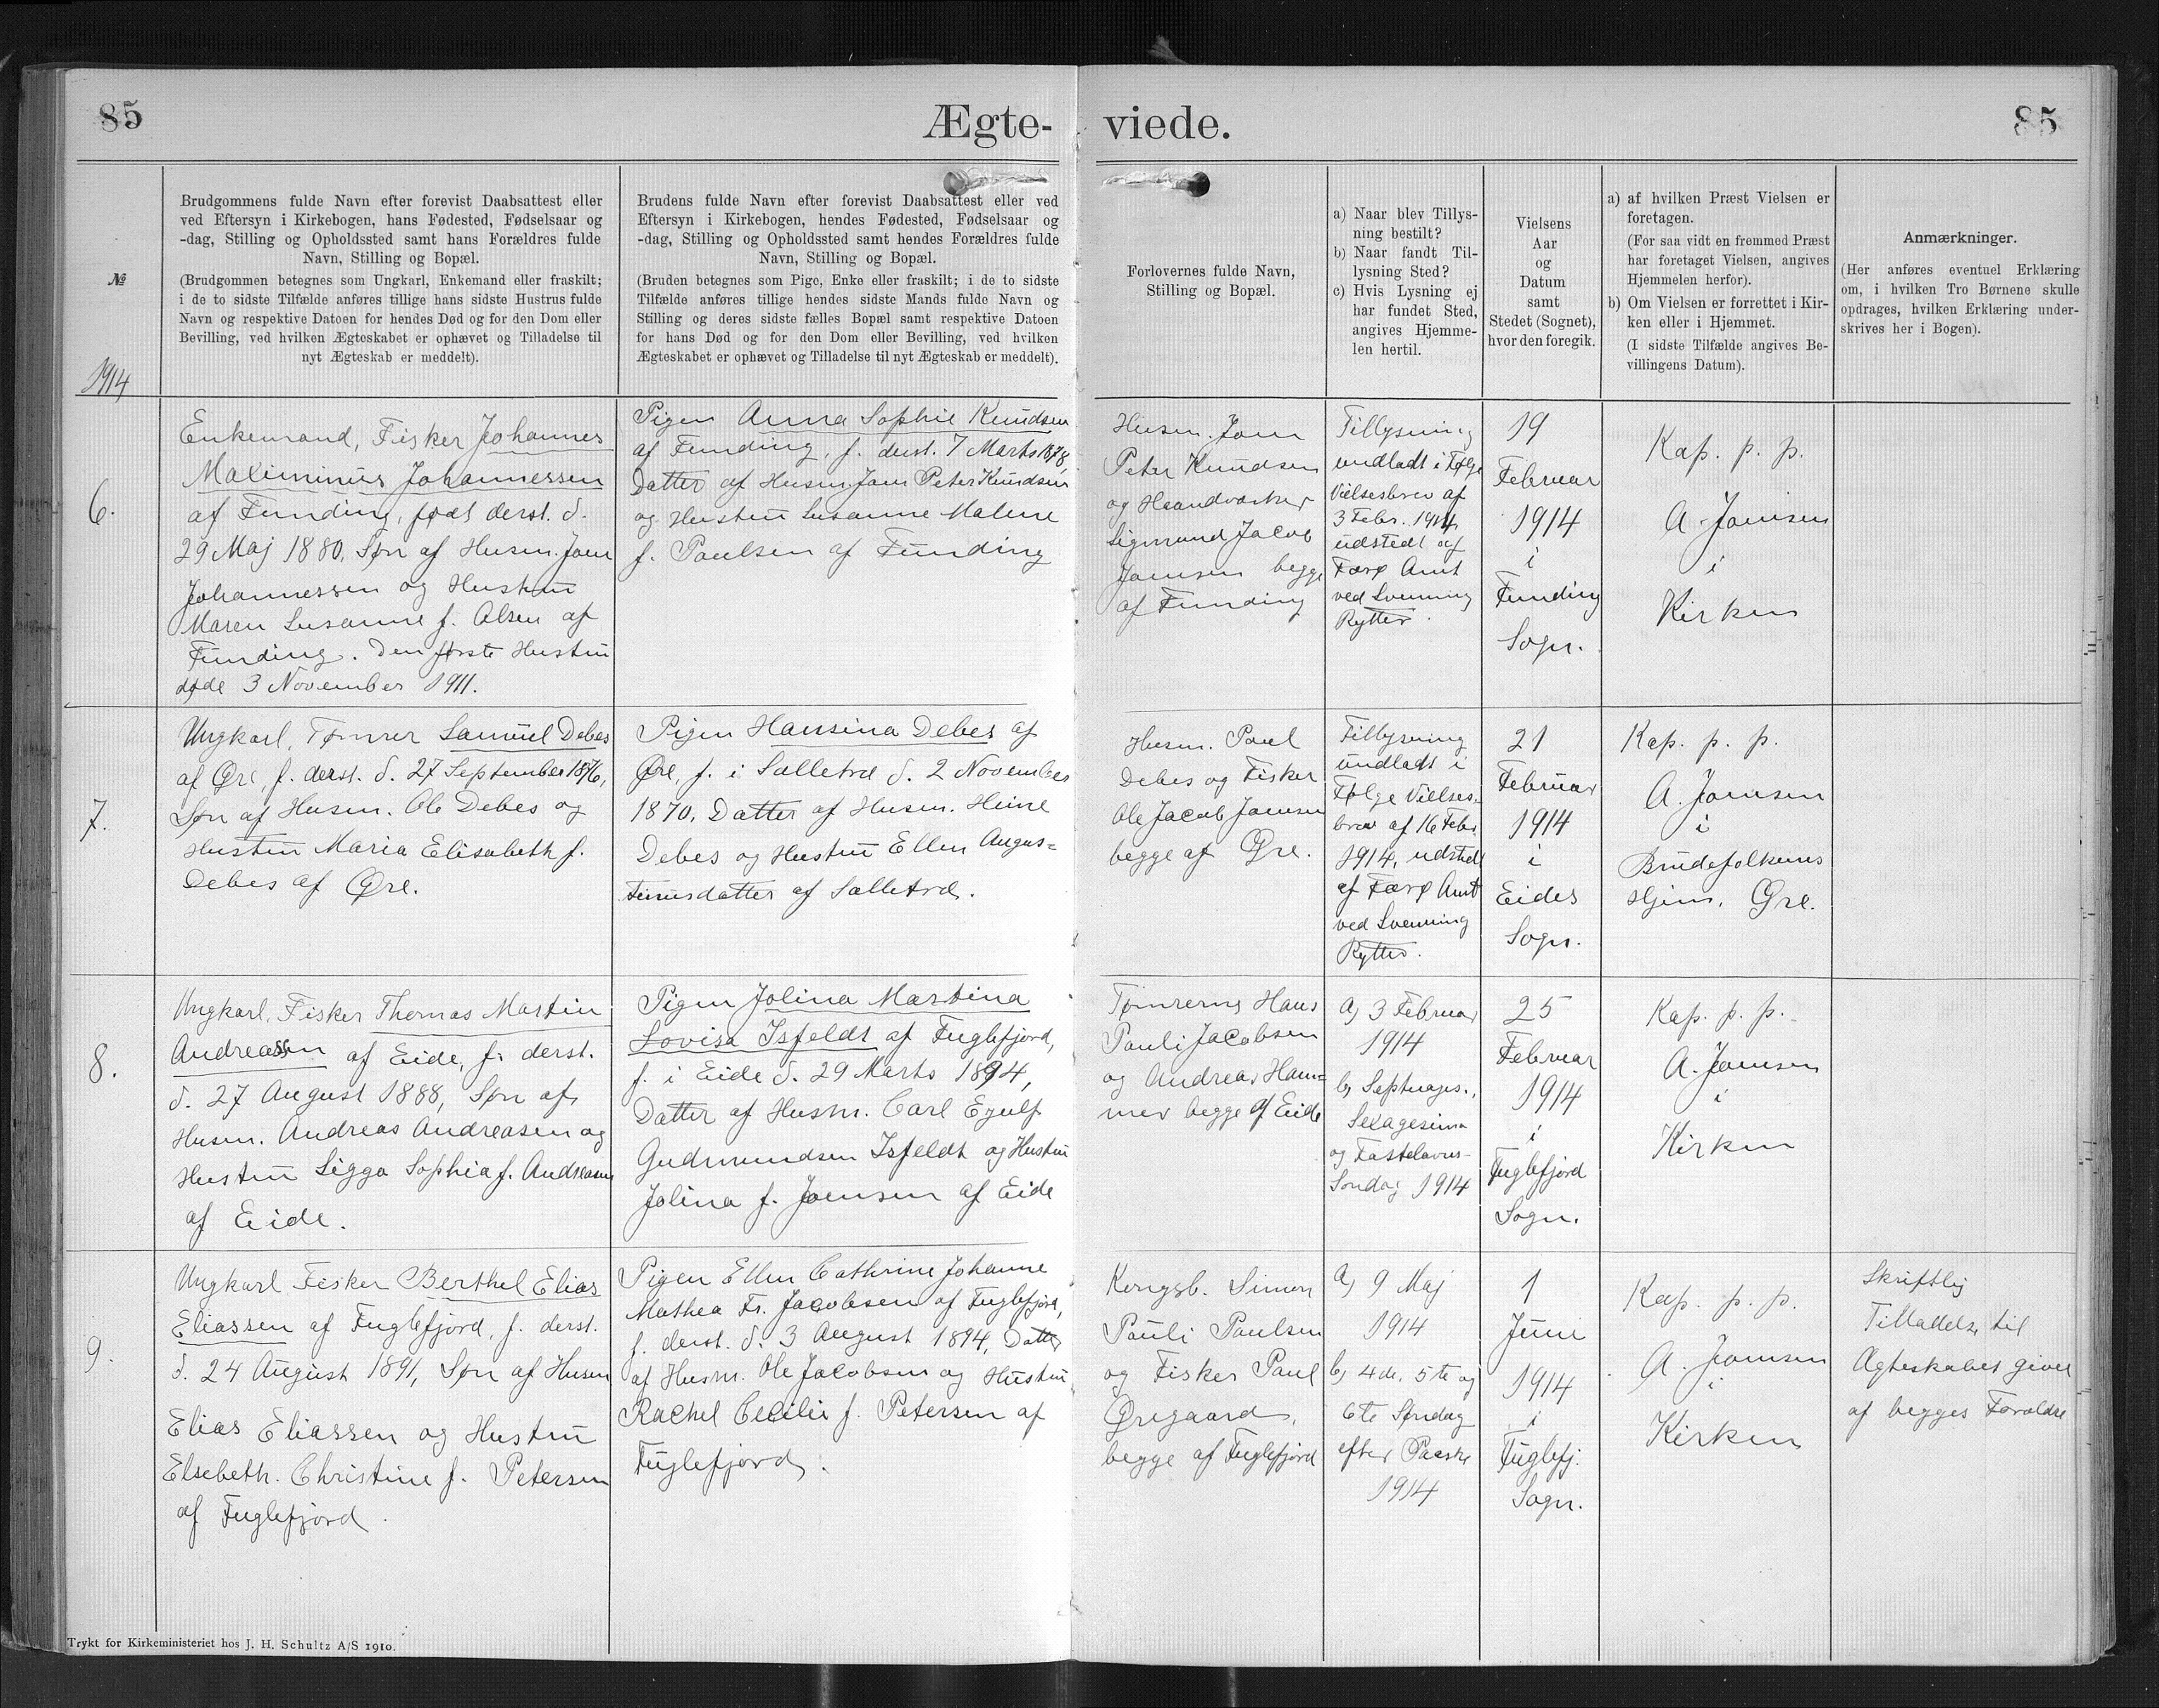 85
Ægte-
viede.
85
№
1914
Brudgommens fulde Navn efter forevist Daabsattest eller
ved Eftersyn i Kirkebogen, hans Fødested, Fødselsaar og
-dag, Stilling og Opholdssted samt hans Forældres fulde
Navn, Stilling og Bopæl.
(Brudgommen betegnes som Ungkarl, Enkemand eller fraskilt;
i de to sidste Tilfælde anføres tillige hans sidste Hustrus fulde
Navn og respektive Datoen for hendes Død og for den Dom eller
Bevilling, ved hvilken Ægteskabet er ophævet og Tilladelse til
nyt Ægteskab er meddelt).
Brudens fulde Navn efter forevist Daabsattest eller ved
Eftersyn i Kirkebogen, hendes Fødested, Fødselsaar og
-dag, Stilling og Opholdssted samt hendes Forældres fulde
Navn, Stilling og Bopæl.
(Bruden betegnes som Pige, Enke eller fraskilt; i de to sidste
Tilfælde anføres tillige hendes sidste Mands fulde Navn og
Stilling og deres sidste fælles Bopæl samt respektive Datoen
for hans Død og for den Dom eller Bevilling, ved hvilken
Ægteskabet er ophævet og Tilladelse til nyt Ægteskab er meddelt).
Forlovernes fulde Navn,
Stilling og Bopæl.
a) Naar blev Tillys-
ning bestilt?
b) Naar fandt Til-
lysning Sted?
c) Hvis Lysning ej
har fundet Sted,
angives Hjemme-
len hertil.
Vielsens
Aar
og
Datum
samt
Stedet (Sognet),
hvor den foregik.
a) af hvilken Præst Vielsen er
foretagen.
(For saa vidt en fremmed Præst
har foretaget Vielsen, angives
Hjemmelen herfor).
b) Om Vielsen er forrettet i Kir-
ken eller i Hjemmet.
(I sidste Tilfælde angives Be-
villingens Datum).
Anmærkninger.
(Her anføres eventuel Erklæring
om, i hvilken Tro Børnene skulle
opdrages, hvilken Erklæring under-
skrives her i Bogen).
6.
Enkemand, Fisker Johannes
Maximinus Johannessen
af Funding, født derst. d.
29 Maj 1880, Søn af Husm. Joen
Johannessen og Hustru
Maren Susanne f. Olsen af
Funding. Den første Hustru
døde 3 November 1911.
Pigen Anna Sophie Knudsen
af Funding, f. derst. 7 Marts 1878,
Datter af Husm. Joen Peter Knudsen
og Hustru Susanne Malene
f. Poulsen af Funding
Husm. Joen
Peter Knudsen
og Haandværker
Sigmund Jacob
Joensen begge
af Funding
Tillysning
undladt i Følge
Vielsesbrev af
3 Febr. 1914,
udstedt af
Færø Amt
ved Svenning
Rytter.
19
Februar
1914
i
Funding
Sogn.
Kap. p. p.
A. Joensen
i
Kirken
7.
Ungkarl, Tømrer Samuel Debes
af Øre, f. derst. d. 27 September 1876,
Søn af Husm. Ole Debes og
Hustru Maria Elisabeth f.
Debes af Øre.
Pigen Hansina Debes af
Øre, f. i Salletræ d. 2 November
1870, Datter af Husm. Heine
Debes og Hustru Ellen Augus=
tinusdatter af Salletræ.
Husm. Poul
Debes og Fisker
Ole Jacob Joensen
begge af Øre.
Tillysning
undladt i
Følge Vielses-
brev af 16 Febr.
1914, udstedt
af Færø Amt
ved Svenning
Rytter.
21
Februar
1914
i
Eides
Sogn.
Kap. p. p.
A. Joensen
i
Brudefolkenes
Hjem, Øre.
8.
Ungkarl, Fisker Thomas Martin
Andreassen af Eide, f. derst.
d. 27 August 1888, Søn af
Husm. Andreas Andreasen og
Hustru Sigga Sophia f. Andreasen
af Eide.
Pigen Jolina Martina
Lovisa Isfeldt af Fuglefjord,
f. i Eide d. 29 Marts 1894,
Datter af Husm. Carl Eyulf
Gudmundsen Isfeldt og Hustru
Jolina f. Joensen af Eide
Tømrerne Hans
Pauli Jacobsen
og Andreas Ham=
mer begge af Eide
a) 3 Februar
1914
b) Septuages.,
Sexagesima
og Fastelavns-
Søndag 1914
25
Februar
1914
i
Fuglefjord
Sogn.
Kap. p. p.
A. Joensen
i
Kirken
9.
Ungkarl Fisker Berthel Elias
Eliassen af Fuglefjord, f. derst.
d. 24 August 1891, Søn af Husm
Elias Eliassen og Hustru
Elsebeth Christine f. Petersen
af Fuglefjord.
Pigen Ellen Cathrine Johanne
Mathea Fr. Jacobsen af Fuglefjord,
f. derst. d. 3 August 1894, Datter
af Husm. Ole Jacobsen og Hustru
Rachel Cecilie f. Petersen af
Fuglefjord.
Kongsb. Simon
Pauli Poulsen
og Fisker Poul
Øregaard,
begge af Fuglefjord
a) 9 Maj
1914
b) 4de, 5te og
6te Søndag
efter Paaske
1914
1
Juni
1914
i
Fuglefj.
Sogn.
Kap. p. p.
A. Joensen
i
Kirken
Skriftlig
Tilladelse til
Ægteskabet givet
af begges Forældre
Trykt for Kirkeministeriet hos J. H. Schultz A/S 1910.